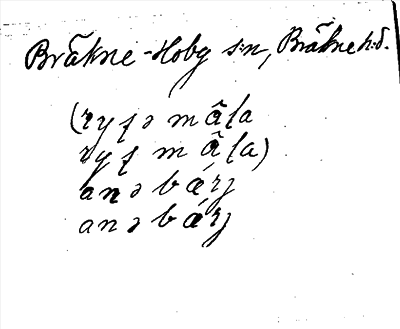 Bräkne-Hoby s:n, Bräkne h:d.
(ryʃə mâla
ryʃ mâla)
anə bǽrj
anə bǽrj